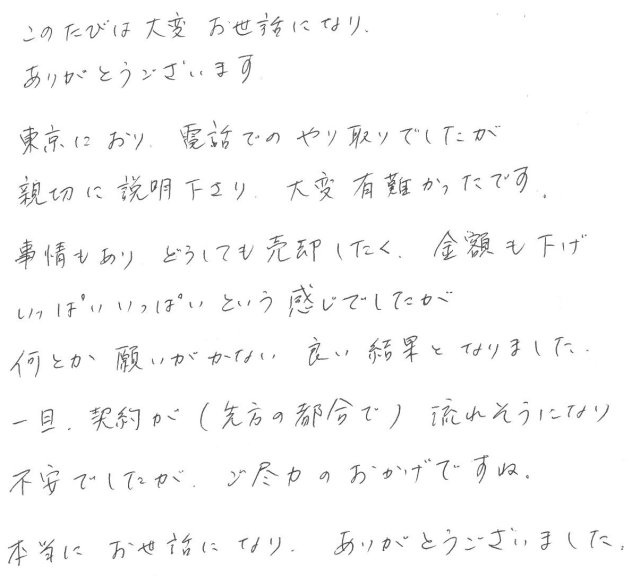 このたびは 大変 お世話になり、
ありがとうございます
東京に おり、電話での やり取りでしたが
親切に 説明下さり、大変 有難かったです。
事情もあり どうしても 売却したく、金額も下げ
いっぱい いっぱい という 感じでしたが
何とか 願いがかない 良い 結果と なりました。
一旦、契約が(先方の都合で)流れそうになり
不安でしたが、ご尽力の おかげですね。
本当に お世話になり、ありがとうございました。